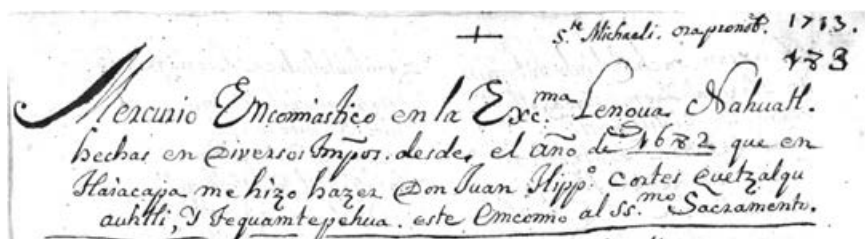 + Ste Michaeli. ora pronob. 1713.
183
Mercurio Encomiastico en la Exc.ma Lengua Nahuatl.
hechas en Diversos tmpos. desde, el año de 1682 que en
tlaiacapa me hizo hazer Don Juan Hippo. Cortes quetzalqu
auhtli, Y Tequamtepehua. este Emcomio al SS.mo Sacramento.